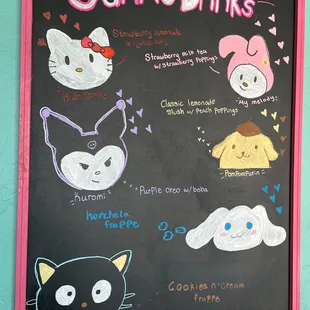 Sanrio Drinks
Strawberry lemonade
Strawberry milk tea
w/ strawberry poppings
Hello Kitty
My melody
Classic lemonade
slush w/ Peach Poppings
Pompompurin
Kuromi
Purple oreo w/ boba
horchata
frappe
Cookies n' cream
frappe